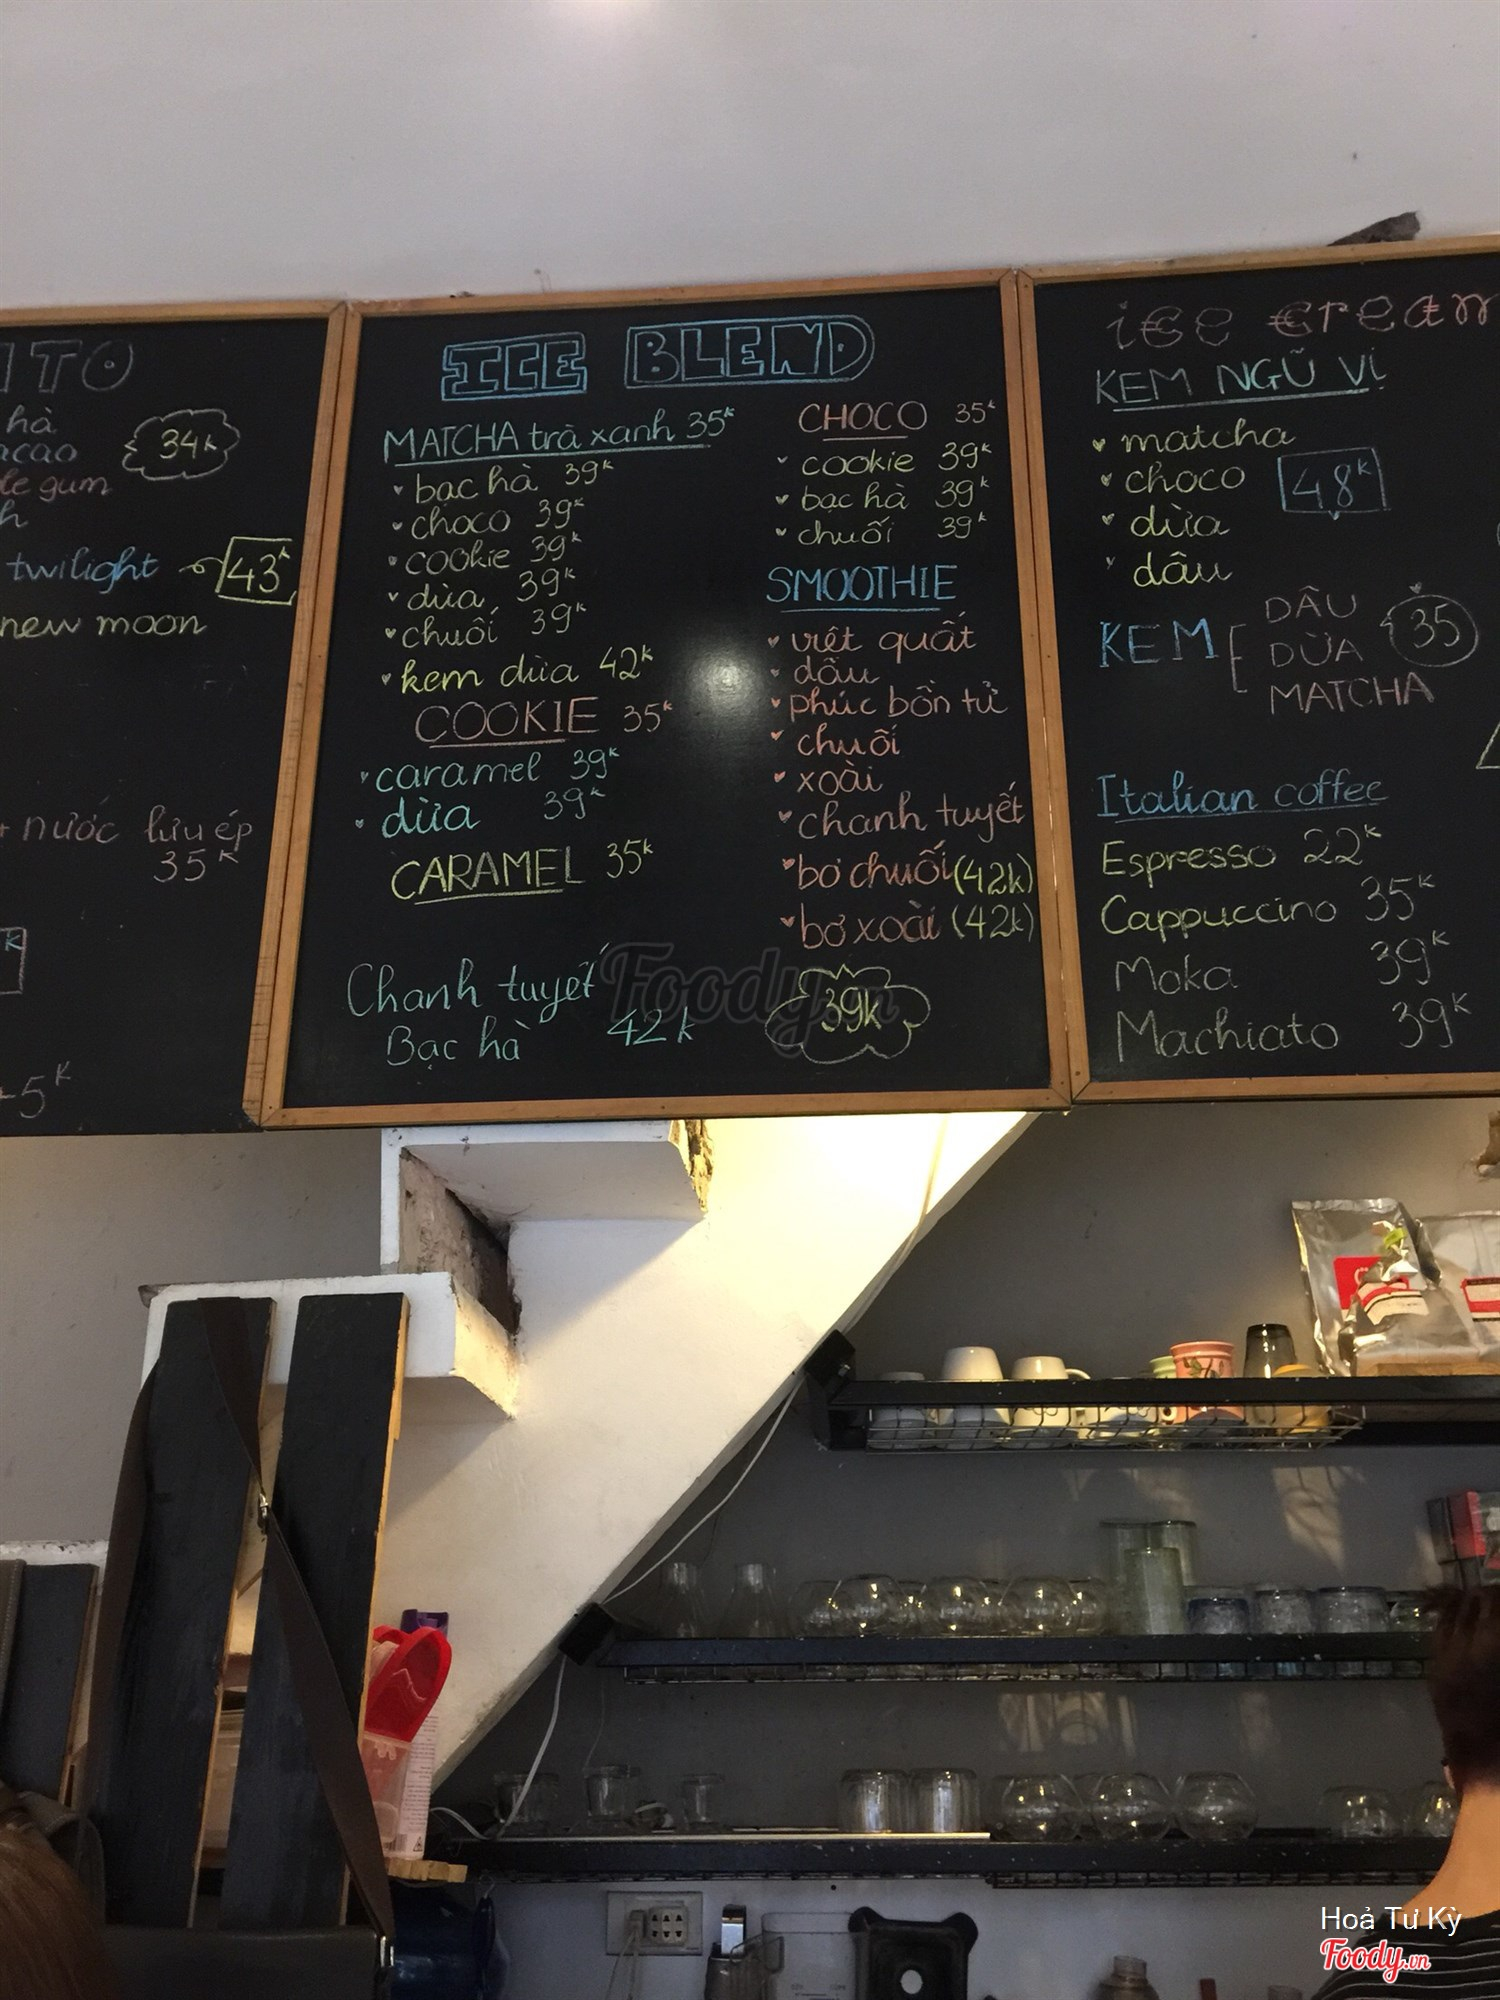 ITO
hà
34k
acao
le gum
h
twilight 43k
new moon
+ nước lựu ép
35k
k
5k
ICE BLEND
MATCHA trà xanh 35k
bạc hà 39k
choco 39k
cookie 39k
dừa 39k
chuối 39k
kem dừa 42k
COOKIE 35k
caramel 39k
dừa 39k
CARAMEL 35k
Chanh tuyết
Bạc hà 42k
CHOCO 35k
cookie 39k
bạc hà 39k
chuối 39k
SMOOTHIE
việt quất
dâu
phúc bồn tử
chuối
xoài
chanh tuyết
bơ chuối (42k)
bơ xoài (42k)
39k
Foody.vn
ice cream
KEM NGŨ VỊ
matcha
choco 48k
dừa
dâu
KEM DÂU
DỪA 35
MATCHA
Italian coffee
Espresso 22k
Cappuccino 35k
Moka 39k
Machiato 39k
Hoả Tư Kỳ
Foody.vn